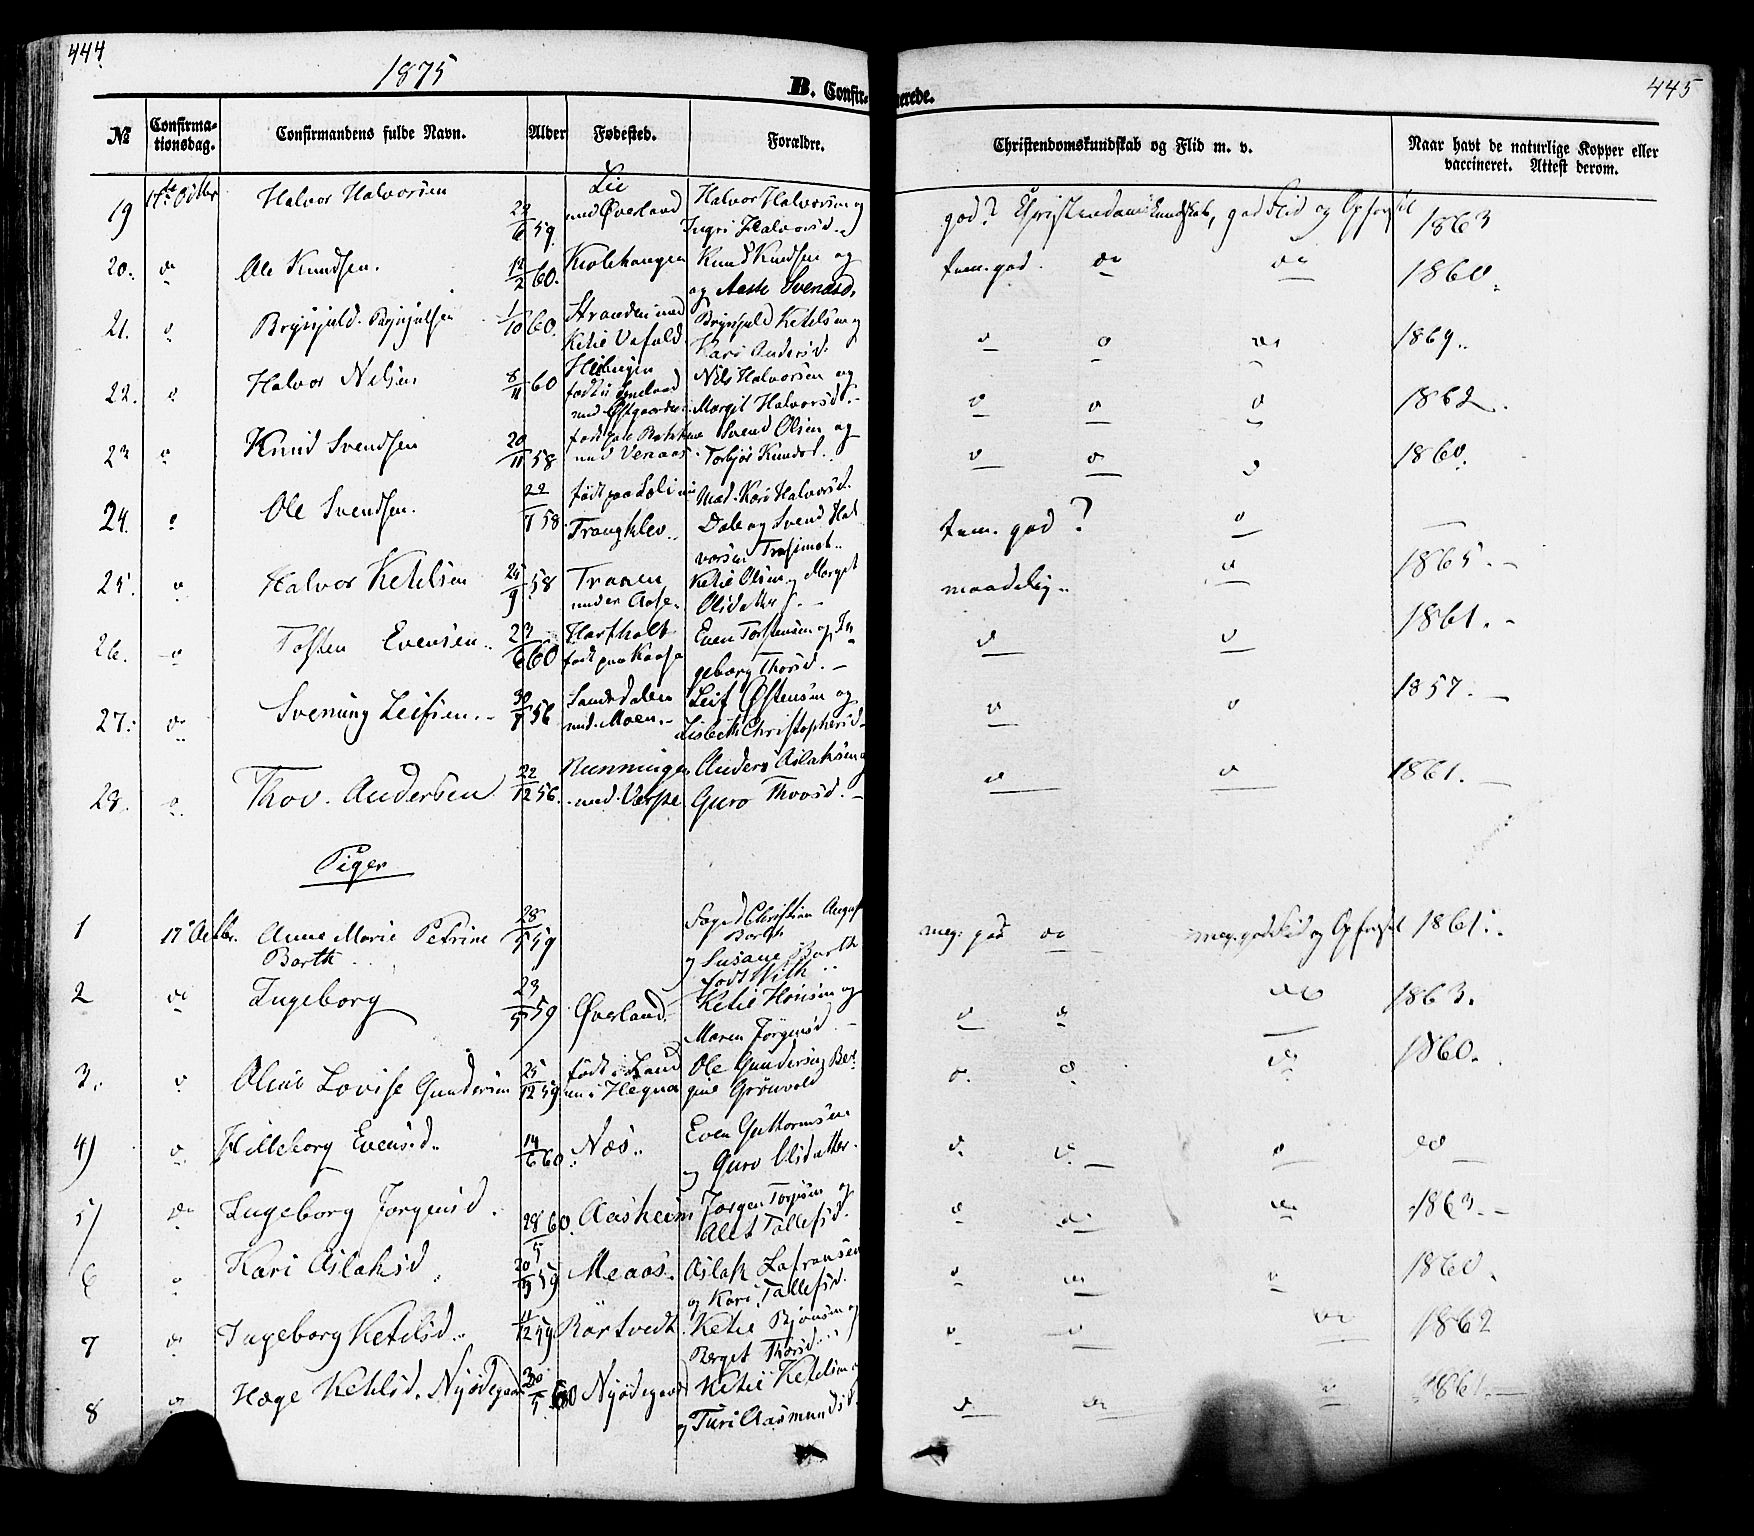 444
1875
B. Confir-
merede.
445
No
Confirma-
tionsdag.
Confirmandens fulde Navn.
Alder
Fødested.
Forældre.
Christendomskundskab og Flid m. v.
Naar havt de naturlige Kopper eller
vaccineret. Attest derom.
19 17de Octbr Halvor Halvorsen 22/6 59. Lie und Øverland Halvor Halvorsen og Ingri Halvorsd. god? Christendomskundskab, god Flid og Opførsel 1863
20. do Ole Knudsen. 14/2 60. Knud Knudsen og og Aase Svendsd. tem. god. do do 1860.
21. o 1/10 60. Stranden und Brynjuld Ketilsen og Kari Andersd. o o do 1869.
22. o Halvor Nilsen 8/11 60 Nils Halvorsen og Margit Halvorsd. o o o 1862.
23 o Knud Svendsen 20/11 58 und Venaas Svend Olsen og o o o 1860.
24. o Ole Svendsen. 22/7 58 født paa Trangklev. Kari Halvorsd. Dale og Svend Halvorsen tem. god? o —
25. o Halvor Ketilsen 25/9 58 Traaen under Aase. Ketil Olsen og Margit Olsdatter maadelig o 1865.
26. o Tosten Evensen 23/6 60 Hartholt født paa Kaasa Even Torstensen og Ingeborg Thorsd. o o 1861.
27. do Svenung Leifsen. 30/7 56 Sandsdalen und. Moen. Leif Østensen og Lisbeth Christophersd. o o 1857.
28. o Thov. Andersen 22/12 56. Runningen und. Verpe Anders Aslaksen og Guro Thovsd. o o 1861.
Piger
1 17 Octbr. Anne Marie Petrine Barth 28/5 59 Foged Christian August Barth og Susane Barth født Wilh meg. god do meg. god Flid og Opførsel 1861.
2 do Ingeborg 23/5 59 Øverland. Ketil og Maren Jörgensd. o o do 1863.
3. o Oline Lovise Gundersen 25/12 59 født i Hegna Ole Gundersen Bergine Grönvold o. o. do 1860.
4) o Hilleborg Evensd. 14/6 60 Næs. Even Guttormsen og Guro Olsdatter. o. o. o do
5) do Ingeborg Jorgensd. 28/5 60. Aasheim Jorgen og Tallefsd. o do do 1863.
6 o Kari Aslaksd 20/9 59 Meaas. Aslak Lafransen og Kari Tallefsd. o do o 1860.
7 do Ingeborg Ketilsd. 11/12 59. Rörtvedt. Ketil Bjönsen og Berget Thorsd. o o do 1862
8 do Hæge Ketilsd. Nyødegaard 30/5 60 Nyødegaard Ketil Ketilsen og Turi Aasmundsd. o do o 1861.